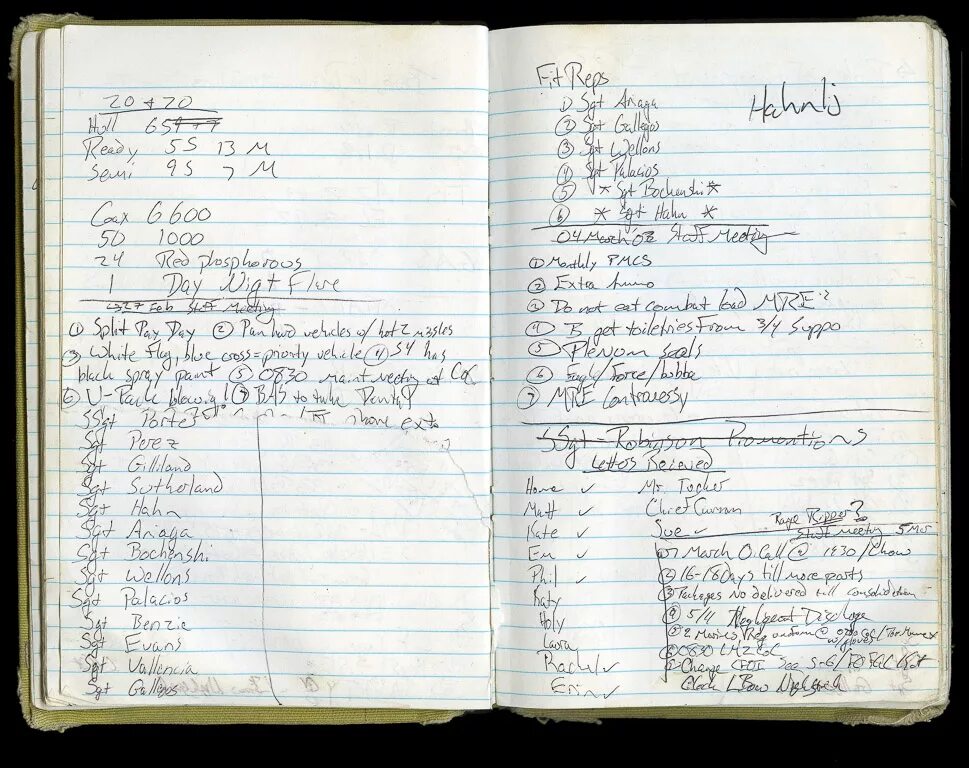 20 + 20
Hull 65
Ready 5S 13 M
Semi 9S 7 M
Coax 6600
50 1000
24 Red phosphorous
1 Day Nigt Flare
27 Feb Staff Meeting
① Split Pay Day ② Pan hard vehicles w/ hot 2 missles
③ White flag, blue cross = priority vehicle ④ S4 has
black spray paint ⑤ 0830 maint meeting at COC
⑥ U-Pack blowing ⑦ BAS to take Dental
SSgt Porter
Sgt Perez
Sgt Gilliland
Sgt Sutherland
Sgt Hahn
Sgt Ariaga
Sgt Bochenshi
Sgt Wellons
Sgt Palacios
Sgt Benzie
Sgt Evans
Sgt Vallencia
Sgt Gallegos
Fit Reps
1) Sgt Ariaga
② Sgt Gallegos
③ Sgt Wellons
④ Sgt Palacios
⑤ * Sgt Bochenshi *
⑥ * Sgt Hahn *
04 March 03 Staff Meeting
① Monthly PMCS
② Extra ammo
③ Do not eat combat load MRE
④ B get toiletries From 3/4 Suppo
⑤ Plenum seals
⑥ Eagle/Force/bubba
⑦ MRE Contraversy
SSgt - Robinson Promontions
Letters Recieved
Home ✓ Mr. Tucker
Matt ✓ Chief Curran
Kate ✓ Sue ✓
Em ✓
Phil ✓
Katy
Holy
Laura
Rachel ✓
Erin ✓
Rage Ripper?
Staff meeting 5 Mar
① 7 March O. Call @ 1930/Chow
② 16-18 Days till more parts
③ Packages No delivered till consolidation
④ 5/4 Neglegent Discharge
⑤ 2 Marines Req uniform @
⑥ 0830 LMZ COC
⑦ Change